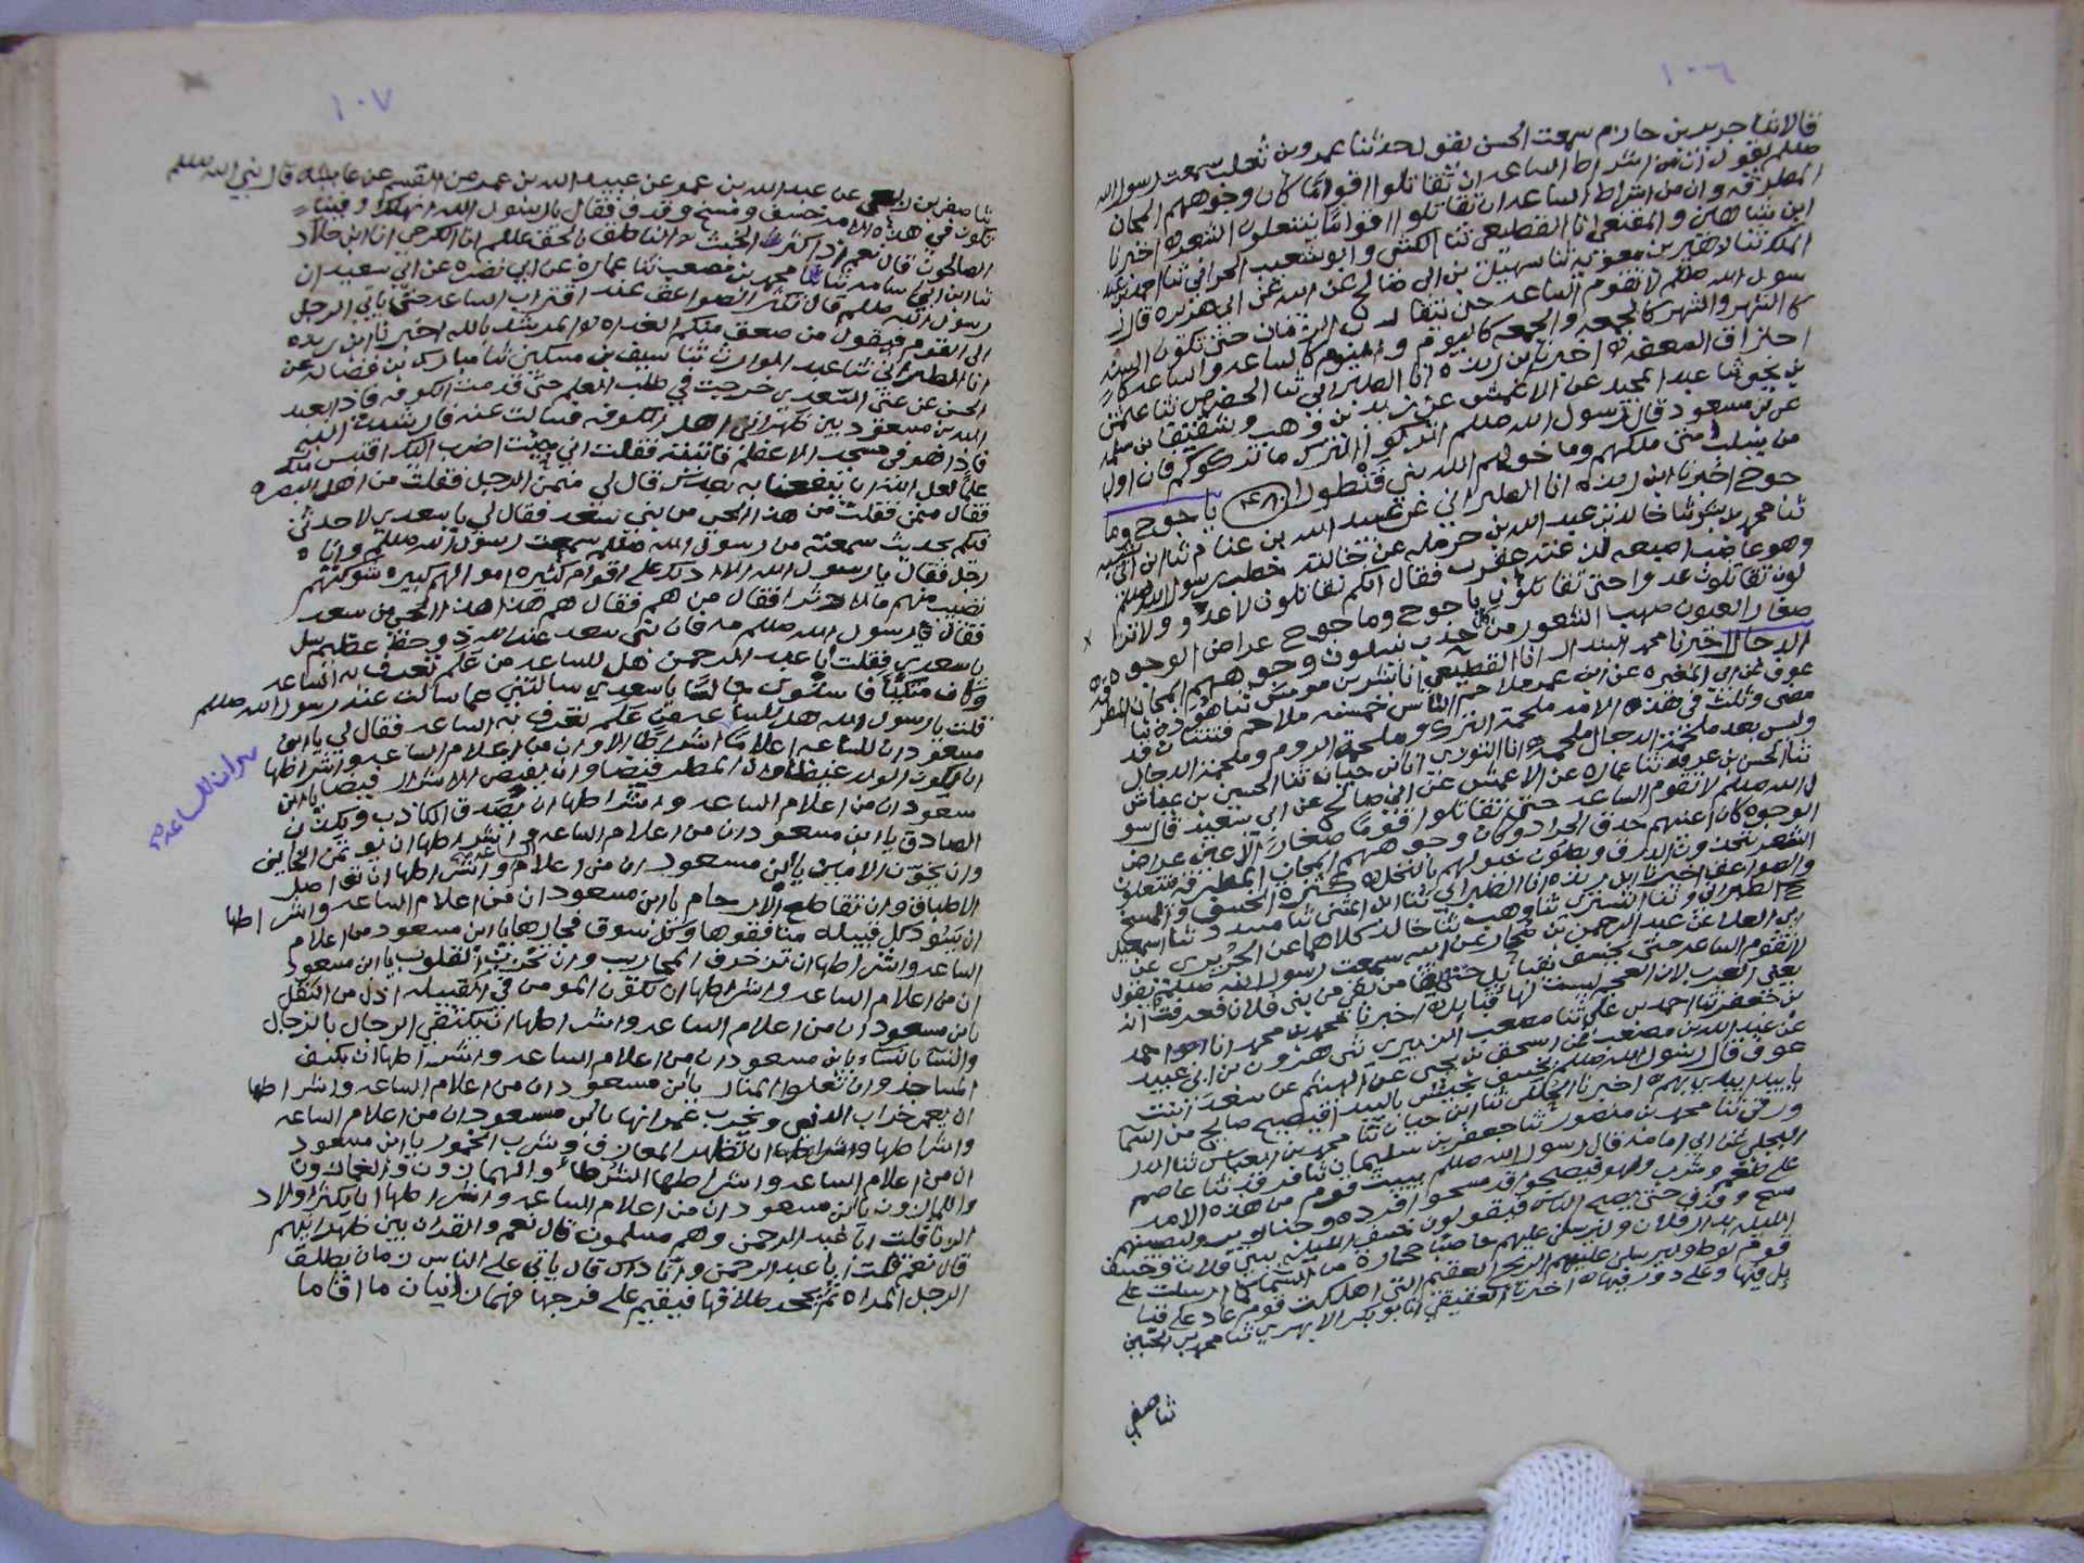 ١٠٦
قالا ثنا جرير بن حازم سمعت الحسن يقول حدثنا عمرو بن ثعلب سمعت رسول الله
صللم يقول ان من اشراط الساعه ان تقاتلوا اقواما كان وجوههم المجان
المطرقه وان من اشراط الساعه ان تقاتلوا اقواما ينتعلون الشعر اخبرنا
ابن شاهين والمقنعي انا القطيعي ثنا الكشي وابو شعيب الحراني ثنا احمد بن عبد
الملك ثنا زهير بن معويه ثنا سهيل بن ابي صالح عن ابيه عن ابي هريره قال
سول الله صللم لا تقوم الساعه حتى يتقارب الزمان حتى تكون السنه
كالشهر والشهر كالجمعه والجمعه كاليوم واليوم كالساعه والساعه كا
احتراق السعفه اخبرنا ابن ريذه انا الطبراني ثنا الحضرمي ثنا عثمن
بن يحيى ثنا عبد المجيد عن الاعمش عن زيد بن وهب وشقيق بن سلمه
عن بن مسعود قال رسول الله صللم اتركوا الترك ما تركوكم فان اول
من يسلب امتي ملكهم وما خولهم الله بني قنطورا ياجوج وما
جوج اخبرنا ابن ريذه انا الطبراني عن عبيد الله بن غنام ثنا ابن ابي شيبه
ثنا محمد بن بشر ثنا خالد بن عبد الله بن حرمله عن خالته خطب رسول الله صللم
وهو عاصب اصبعه من لدغة عقرب فقال انكم تقاتلون لا عدو ولا تزا
لون تقاتلون عدوا حتى تقاتلون ياجوج وماجوج عراض الوجوه
صغار العيون صهب الشعور من كل حدب ينسلون وجوههم المجان المطرقه
الدجال اخبرنا محمد البندار انا القطيعي انا بشر بن موسى ثنا هوذه ثنا
عوف عن ابي المغيره عن ابن عمر ملاحم الناس خمسه ملاحم فثنتان قد
مضى وثلث في هذه الامه ملحمة الترك وملحمة الروم وملحمة الدجال
وليس بعد ملحمة الدجال ملحمه انا التوزي انا ابن حيان ثنا الحسين بن عياش
ثنا الحسن بن عرفه ثنا عمار عن الاعمش عن ابي صالح عن ابي سعيد قال رسو
ل الله صللم لا تقوم الساعه حتى تقاتلوا قوما صغار الاعين عراض
الوجوه كان اعينهم حدق الجراد وكان وجوههم المجان المطرقه ينتعلون
الشعر يتخذون الدرق ويربطون خيولهم بالنخل كثرة الخسف والمسخ
والصواعق اخبرنا ابن ريذه انا الطبراني ثنا ابن المثنى ثنا مسدد ثنا اسمعيل
ح الطبراني وثنا التستري ثنا وهب ثنا خالد كلاهما عن الجريري عن
ابي العلا عن عبد الرحمن بن صحار عن ابيه سمعت رسول الله صللم يقول
لا تقوم الساعه حتى يخسف بقبائل حتى يقال من بقي من بني فلان فعرفت انه
يعني العرب لان العجم ليست لها قبائل اخبرنا محمد بن محمد انا ابو احمد
بن جعفر ثنا احمد بن علي ثنا مصعب الزبيري ثني هرون بن ابي عبيد
عن عبد الله بن مصعب عن اسحق بن يحيى عن الهيثم عن سعد
عوف قال رسول الله صللم يخسف بجيش بالبيدا فيصيح صائح من السما
يا بيدا بيدي بهم اخبرنا ثنا ابن حيان ثنا محمد بن العباس ثنا الدر
ورقي ثنا محمد بن منصور ثنا جعفر بن سليمان ثنا فرقد ثنا عاصم
البجلي عن ابي امامه قال رسول الله صللم يبيت قوم من هذه الامه
على طعم وشرب ولهو فيصبحوا قد مسخوا قرده وخنازير وليصيبهم
مسخ وقذف حتى يصبح الناس فيقولون خسف الليله ببني فلان وخسف
الليله بدار فلان وليرسلن عليهم حاصبا حجارة من السماء كما ارسلت على
قوم لوط وليرسلن عليهم الريح العقيم التي اهلكت قوم عاد على قبا
ئل فيها وعلى دور فيها اخبرنا العقيقي انا ابو بكر الابهري ثنا محمد بن الحسين
ثنا صفي
١٠٧
ثنا صفي بن ربعي عن عبد الله بن عمر عن عبيد الله بن عمر عن القسم عن عايشه قال نبي الله صللم
تكون في هذه الامه خسف ومسخ وقذف فقال يا رسول الله انهلك وفينا
الصالحون قال نعم اذا كثر الخبث الناطقه بالحق علم انا الكرخي انا ابن خلاد
ثنا ابن ابي اسامه ثنا محمد بن مصعب ثنا عماره عن ابي نضره عن ابي سعيد ان
رسول الله صللم قال تكثر الصواعق عند اقتراب الساعه حتى ياتي الرجل
الى القوم فيقول من صعق منكم الغداه اخبرنا ابن ريذه
انا الطبراني ثنا عبد الوارث ثنا سيف بن مسكين ثنا مبارك بن فضاله عن
الحسن عن عتي السعدي خرجت في طلب العلم حتى قدمت الكوفه فاذا بعبد
الله بن مسعود بين ظهراني اهل الكوفه فسالت عنه فارشدت اليه
فاذا هو في مسجد الاعظم فاتيته فقلت اني جيت اضرب اليك اقتبس منك
علما لعل الله ان ينفعنا به بعدك قال لي ممن الرجل فقلت من اهل البصره
فقال ممن فقلت من هذا الحي من بني سعد فقال لي يا سعدي لاحدثن
فيكم بحديث سمعته من رسول الله صللم سمعت رسول الله صللم واتاه
رجل فقال يا رسول الله الا ادلك على اقوام كثيره اموالهم كبيره شوكتهم
تصيب منهم مالا دثرا فقال من هم فقال هم هذا الحي من سعد
فقال رسول الله صللم مه فان بني سعد عند الله ذو حظ عظيم سل
يا سعدي فقلت ابا عبد الرحمن هل للساعه من علم تعرف به الساعه
وكان متكيا فاستوى جالسا يا سعدي سالتني عما سالت عنه رسول الله صللم
قلت يا رسول الله هل للساعه من علم تعرف به الساعه فقال لي يا ابن
مسعود ان للساعه اعلاما اشراطا الا وان من اعلام الساعه واشراطها
ان يكون الولد غيظا وان المطر قيضا وان يفيض الاشرار فيضا يا ابن
سعود ان من اعلام الساعه واشراطها ان يصدق الكاذب ويكذب
الصادق يا ابن مسعود ان من اعلام الساعه واشراطها ان يؤتمن الخاين
وان يخون الامين يا ابن مسعود ان من اعلام واشراطها ان تواصل
الاطباق وان تقاطع الارحام يا ابن مسعود ان من اعلام الساعه واشراطها
ان يسود كل قبيله منافقوها وكل سوق فجارها يا ابن مسعود من اعلام
الساعه واشراطها ان تزخرف المحاريب وان تخرب القلوب يا ابن مسعود
ان من اعلام الساعه واشراطها ان تكون المومن في القبيله اذل من النقل
يا بن مسعود ان من اعلام الساعه واشراطها ان يكتفي الرجال بالرجال
والنسا بالنساء يا بن مسعود ان من اعلام الساعه واشراطها ان يكنف
المساجد وان تعلوا المنابر يا ابن مسعود ان من اعلام الساعه واشراطها
ان يعمر خراب الدنيا ويخرب عمرانها يا ابن مسعود ان من اعلام الساعه
واشراطها ان تظهر المعازف وشرب الخمور يا ابن مسعود
ان من اعلام الساعه واشراطها الشرطاء والهمازون والغمازون
واللمازون يا ابن مسعود ان من اعلام الساعه واشراطها ان يكثر اولاد
الزنا قلت ابا عبد الرحمن وهم مسلمون قال نعم والقران بين ظهرانيهم
قال نعم قلت ابا عبد الرحمن وانا ذاك قال ياتي على الناس زمان يطلق
الرجل المراه ثم يجحد طلاقها فيقيم على فرجها فهما زانيان ما اقاما